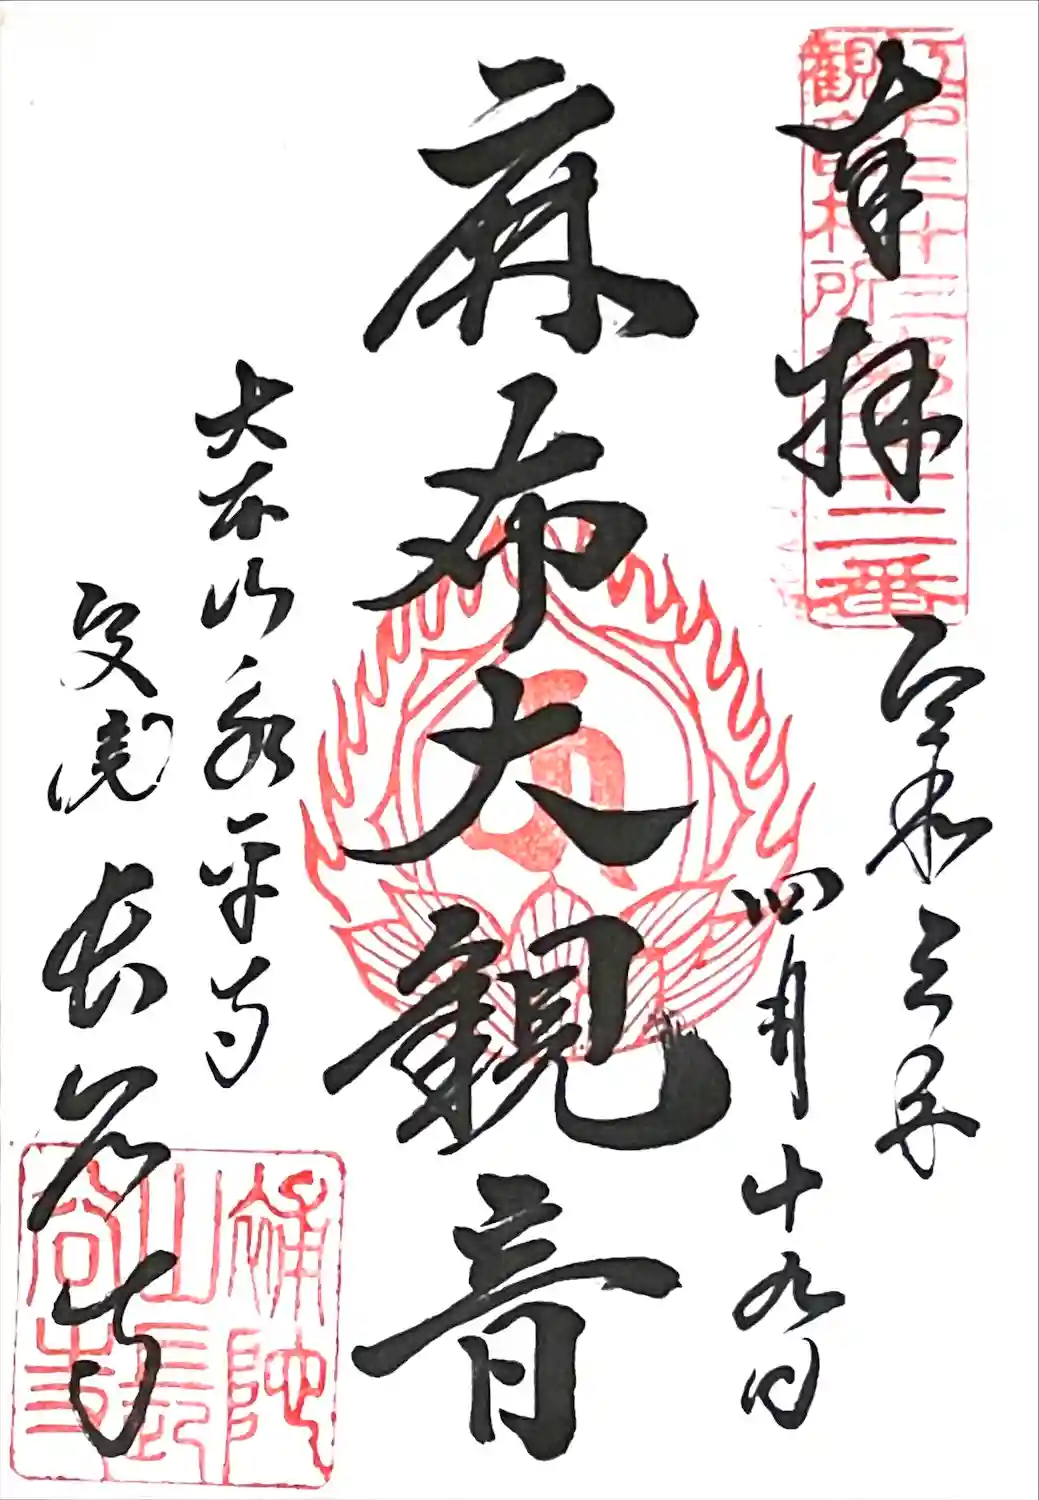 奉拝
江戸三十三
観音札所
第二十二番
令和三年
四月十九日
麻布大観音
大本山永平寺
別院
長谷寺
補陀
山長
谷寺